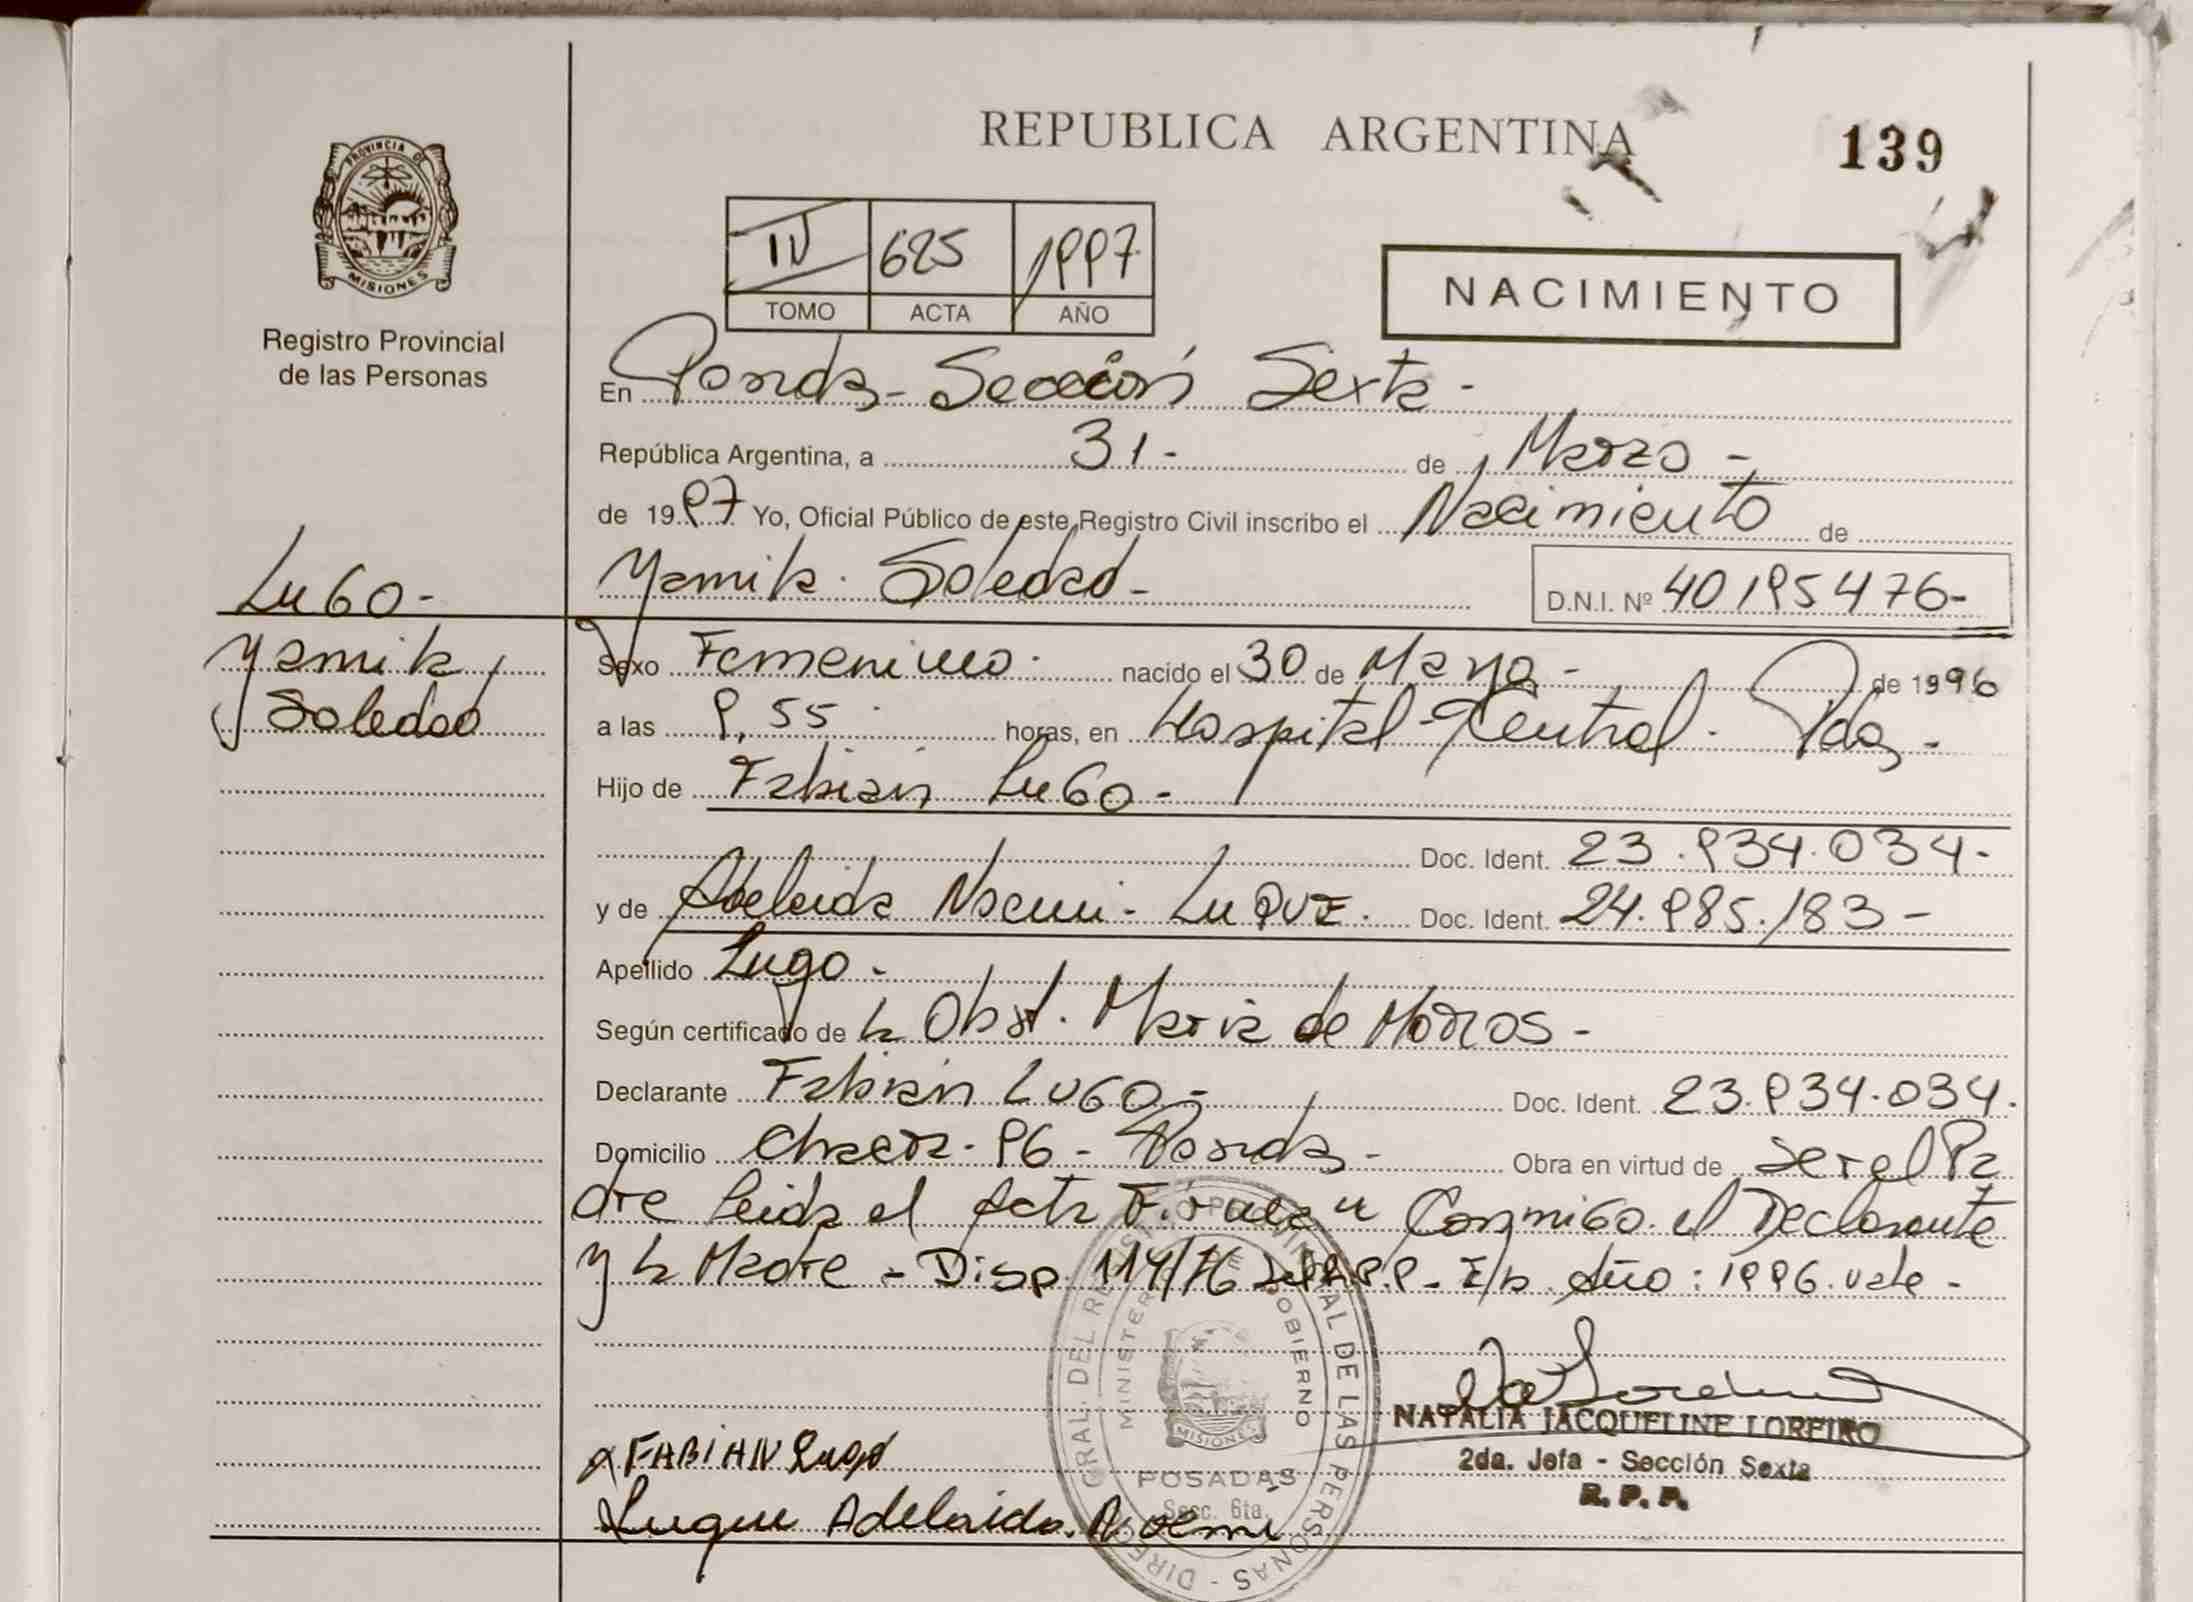 REPUBLICA ARGENTINA
139
PROVINCIA DE
MISIONES
Registro Provincial
de las Personas
IV 625 1997
TOMO ACTA AÑO
NACIMIENTO
En Posadas - Sección Sexta -
República Argentina, a 31 - de Marzo -
de 1997 Yo, Oficial Público de este Registro Civil inscribo el Nacimiento de
Yamila Soledad - D.N.I. Nº 40195476-
Lugo -
Yamila
Soledad
Sexo Femenino. nacido el 30 de Mayo - de 1996
a las 9,55 horas, en Hospital Central. Pdas -
Hijo de Fabián Lugo -
Doc. Ident. 23.934.034-
y de Adelaida Noemi - LUQUE. Doc. Ident. 24.985.183 -
Apellido Lugo -
Según certificado de la Obst. Maria de Morros -
Declarante Fabián Lugo - Doc. Ident. 23.934.034.
Domicilio Chacra - 96 - Posadas - Obra en virtud de ser el Pa
dre Leida el Acta Firman Conmigo el Declarante
y la Madre - Disp. 114/76 R.P.P. - E/L. Año: 1996. vale -
NATALIA JACQUELINE LOREIRO
2da. Jefa - Sección Sexta
R. P. P.
FABIAN Lugo
Luque Adelaida Noemi
DIREC GRAL. DEL REGISTRO PROVINCIAL DE LAS PERSONAS
MINISTERIO DE GOBIERNO
MISIONES
POSADAS
Secc. 6ta.